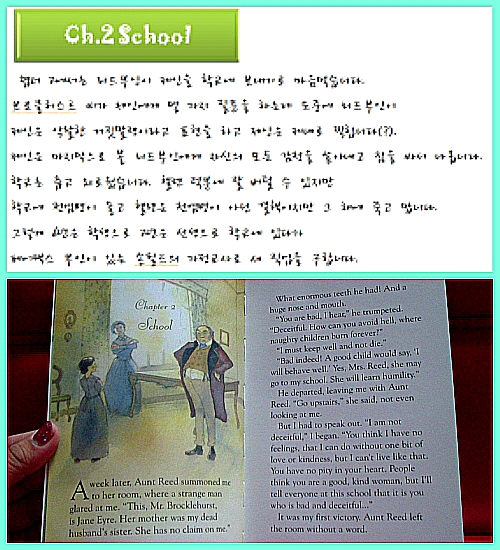 Ch.2 School
챕터 2에서는 리드부인이 제인을 학교에 보내기로 마음먹습니다.
브로클허스트 씨가 제인에게 몇 가지 질문을 하는데 도중에 리드부인이
제인은 악랄한 거짓말쟁이라고 표현을 하고 제인은 제대로 찍힙니다(?).
제인은 마지막으로 분 리드부인에게 자신의 모든 감정을 쏟아내고 짐을 싸서 나옵니다.
학교는 춥고 외로웠습니다. 헬렌 덕분에 잘 버틸 수 있지만
학교에 전염병이 돌고 헬렌은 전염병이 아닌 결핵이지만 그 해에 죽고 맙니다.
그렇게 6년은 학생으로 2년은 선생으로 학교에 있다가
부인이 있는 손필드의 가정교사로 새 직업을 구합니다.
Chapter 2
School
A week later, Aunt Reed summoned me
to her room, where a strange man
glared at me. “This, Mr. Brocklehurst,
is Jane Eyre. Her mother was my dead
husband's sister. She has no claim on me.”
What enormous teeth he had! And a
huge nose and mouth.
“You are bad, I hear,” he trumpeted.
“Deceitful. How can you avoid hell, where
naughty children burn forever?”
“I must keep well and not die.”
“Bad indeed! A good child would say, ‘I
will behave well.’ Yes, Mrs. Reed, she may
go to my school. She will learn humility.”
He departed, leaving me with Aunt
Reed. “Go upstairs,” she said, not even
looking at me.
But I had to speak out. “I am not
deceitful,” I began. “You think I have no
feelings, that I can do without one bit of
love or kindness, but I can't live like that.
You have no pity in your heart. People
think you are a good, kind woman, but I'll
tell everyone at this school that it is you
who is bad and deceitful...”
It was my first victory. Aunt Reed left
the room without a word.